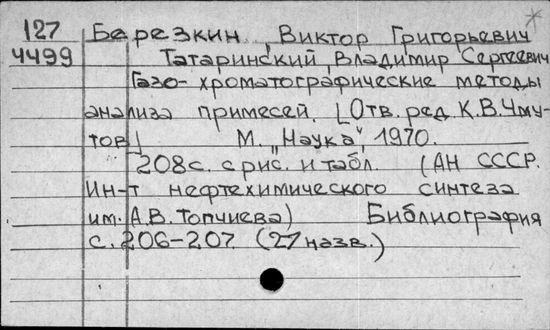 127 Березкин, Виктор Григорьевич
4499 Татаринский, Владимир Сергеевич
Газо-хроматографические методы
анализа примесей. [Отв. ред. К.В. Чму-
тов] М. "Наука", 1970.
208 с. с рис. и табл. (АН СССР.
Ин-т нефтехимического синтеза
им. А.В. Топчиева) Библиография
с. 206-207 (27 назв.)